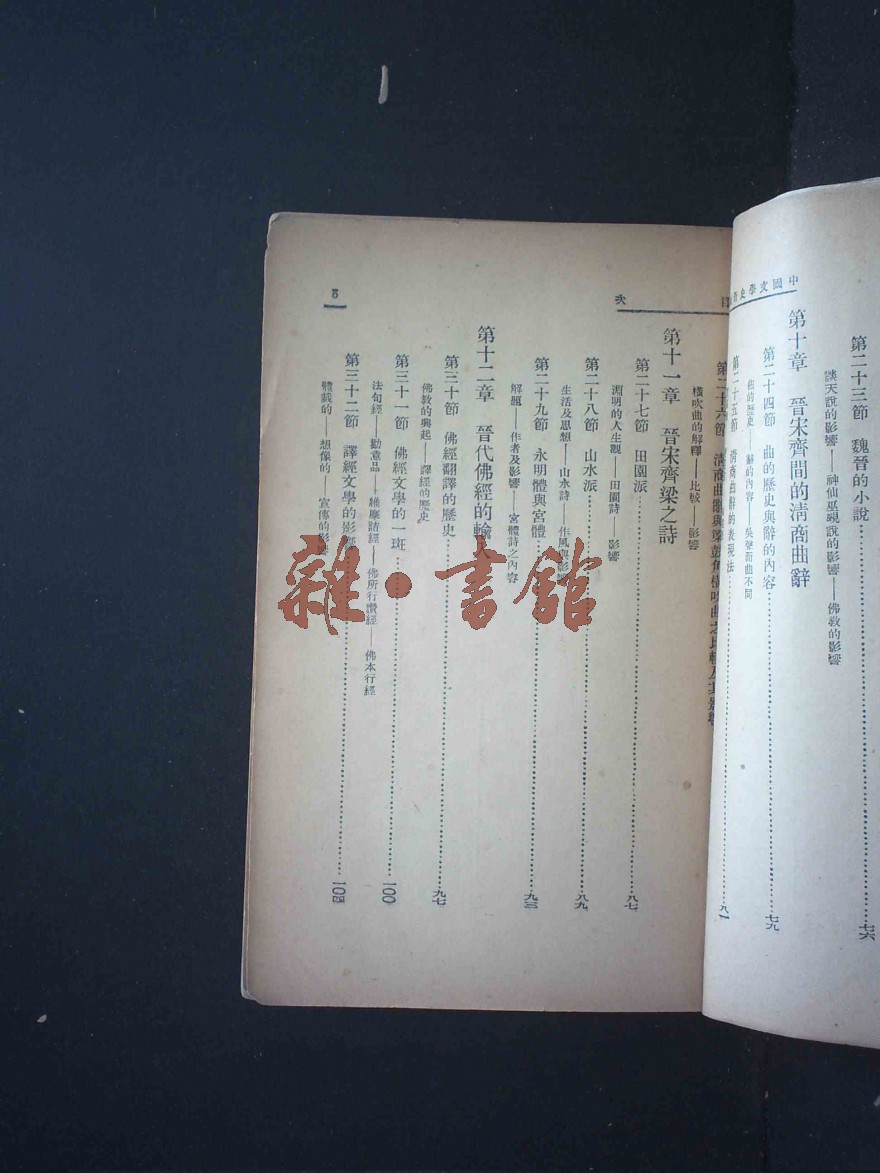 中國文學史
第二十三節 魏晉的小說……七六
談天說的影響——神仙巫覡說的影響——佛教的影響
第十章 晉宋齊間的清商曲辭
第二十四節 曲的歷史與辭的內容……七九
曲的歷史——辭的內容——吳聲西曲不同
第二十五節 清商曲辭的表現法……八一
目 次
第二十六節 清商曲辭與梁鼓角橫吹曲之比較及其影響
橫吹曲的解釋——比較——影響
第十一章 晉宋齊梁之詩
第二十七節 田園派……八七
淵明的人生觀——田園詩——影響
第二十八節 山水派……八九
生活及思想——山水詩——作風與影響
第二十九節 永明體與宮體……九三
解題——作者及影響——宮體詩之內容
第十二章 晉代佛經的輸入
第三十節 佛經翻譯的歷史……九七
佛教的興起——譯經的歷史
第三十一節 佛經文學的一班……一〇〇
法句經——勸意品——維摩詰經——佛所行讚經——佛本行經
第三十二節 譯經文學的影響……一〇四
體裁的——想像的——宣傳的影響
5
雜·書館